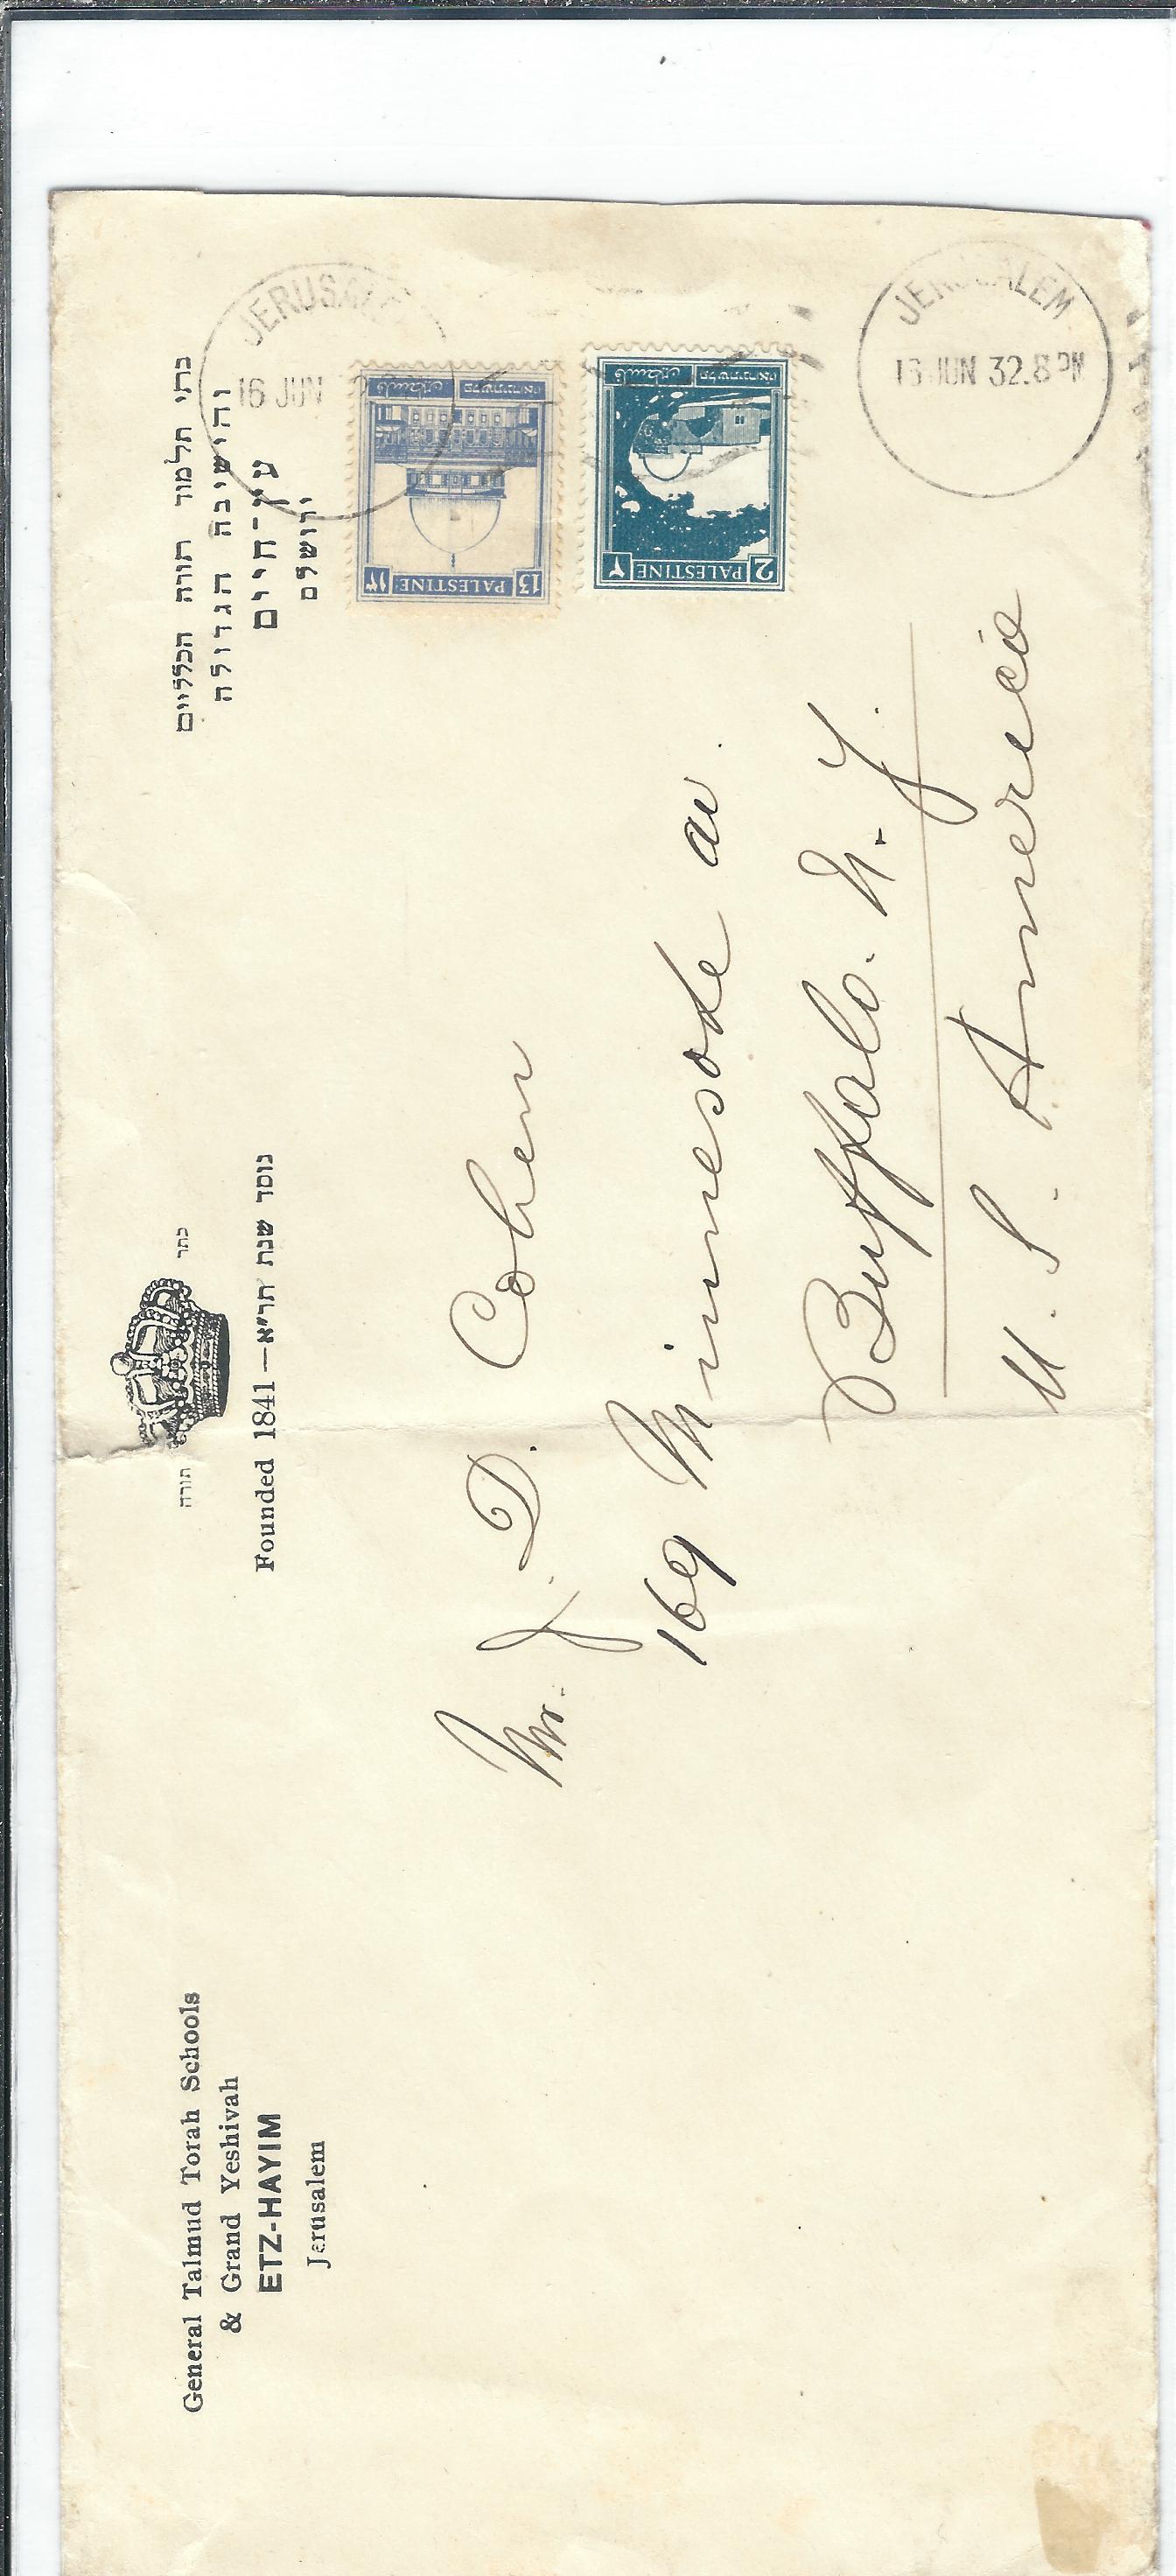 General Talmud Torah Schools
& Grand Yeshivah
ETZ-HAYIM
Jerusalem
כתר
תורה
Founded 1841 — נוסד שנת תר״א
בתי תלמוד תורה הכלליים
והישיבה הגדולה
עץ-חיים
ירושלם
JERUSALEM
16 JUN
PALESTINE
13
١٣
فلسطين
פלשתינה א״י
PALESTINE
2
٢
فلسطين
פלשתינה א״י
JERUSALEM
16 JUN 32.8 PM
Mr. J. D. Cohen
169 Minnesode av.
Buffalo. N. Y.
U. S. America